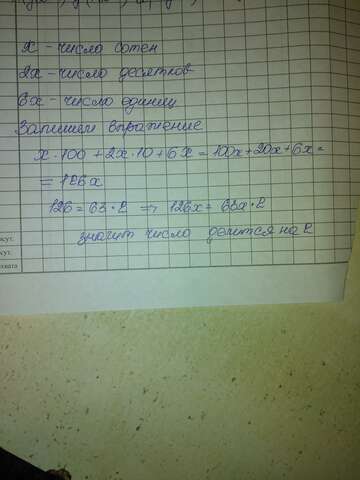 x - число сотен
2x - число десятков
6x - число единиц
Запишем выражение
x · 100 + 2x · 10 + 6x = 100x + 20x + 6x =
= 126x
126 = 63 · 2 ⇒ 126x = 63x · 2
значит число делится на 2
кут.
кут.